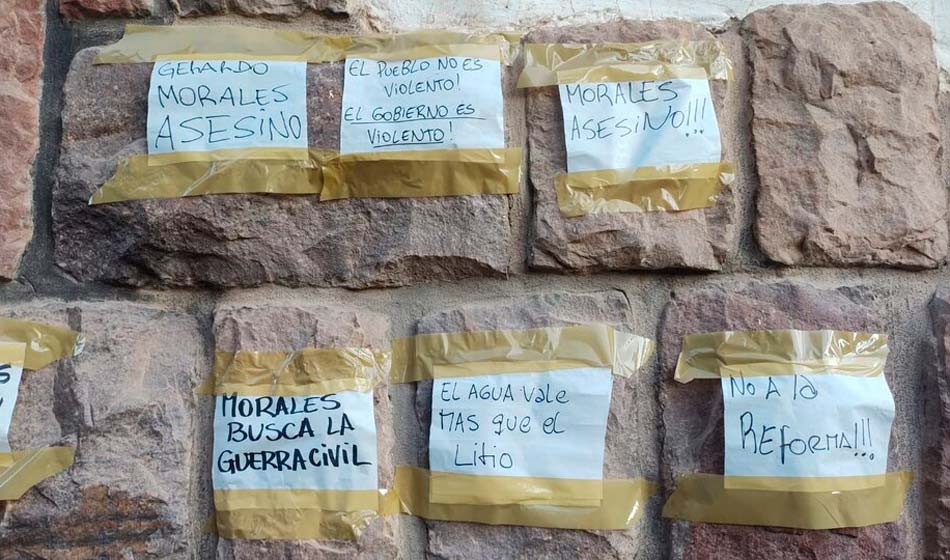 GERARDO
MORALES
ASESINO
EL PUEBLO NO ES
VIOLENTO!
EL GOBIERNO ES
VIOLENTO!
MORALES
ASESINO!!!
MORALES
BUSCA LA
GUERRA CIVIL
EL AGUA vale
MAS que el
Litio
No A la
REforma!!!